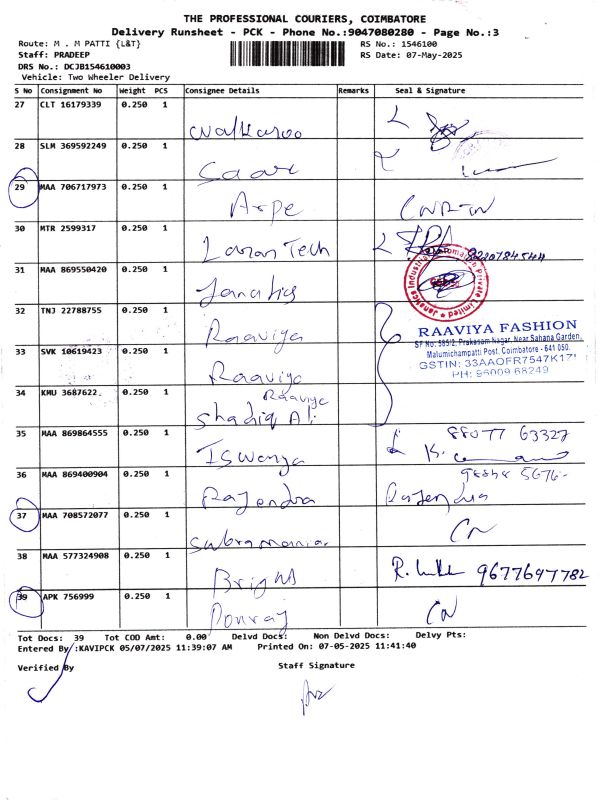 THE PROFESSIONAL COURIERS, COIMBATORE
Delivery Runsheet - PCK - Phone No.:9047080280 - Page No.:3
Route: M . M PATTI {L&T}
RS No.: 1546100
Staff: PRADEEP
RS Date: 07-May-2025
DRS No.: DCJB154610003
Vehicle: Two Wheeler Delivery
S No Consignment No Weight PCS Consignee Details Remarks Seal & Signature
27 CLT 16179339 0.250 1
Walkaroo
28 SLM 369592249 0.250 1
29 MAA 706717973 0.250 1
Arpe
30 MTR 2599317 0.250 1
Tech
31 MAA 869550420 0.250 1
Janatics
32 TNJ 22788755 0.250 1
Raaviya
RAAVIYA FASHION
SF No: 585/2, Prakasam Nagar, Near Sahana Garden,
Malumichampatti Post, Coimbatore - 641 050.
33 SVK 10619423 0.250 1
Raaviya
34 KMU 3687622 0.250 1
Raaviya
Shadiq Ali
35 MAA 869864555 0.250 1
88077 63327
Iswarya
36 MAA 869400904 0.250 1
Rajendra Rajendra
37 MAA 708572077 0.250 1
Subramanian
CN
38 MAA 577324908 0.250 1
Bright
9677697782
39 APK 756999 0.250 1
Ponraj
CN
Tot Docs: 39 Tot COD Amt: 0.00 Delvd Docs: Non Delvd Docs: Delvy Pts:
Entered By :KAVIPCK 05/07/2025 11:39:07 AM Printed On: 07-05-2025 11:41:40
Verified By Staff Signature